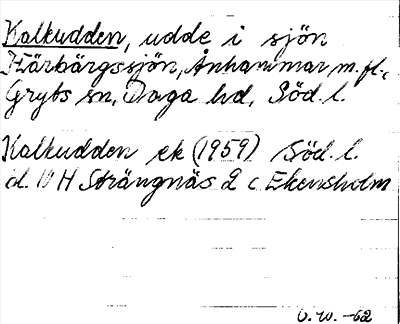 Kalkudden, udde i sjön
Härbärgssjön, Ånhammar m.fl.,
Gryts sn, Daga hd, Söd. l.
Kalkudden ek (1959) Söd. l.
d. 10 H Strängnäs 2 c Ekensholm
O.W. -62